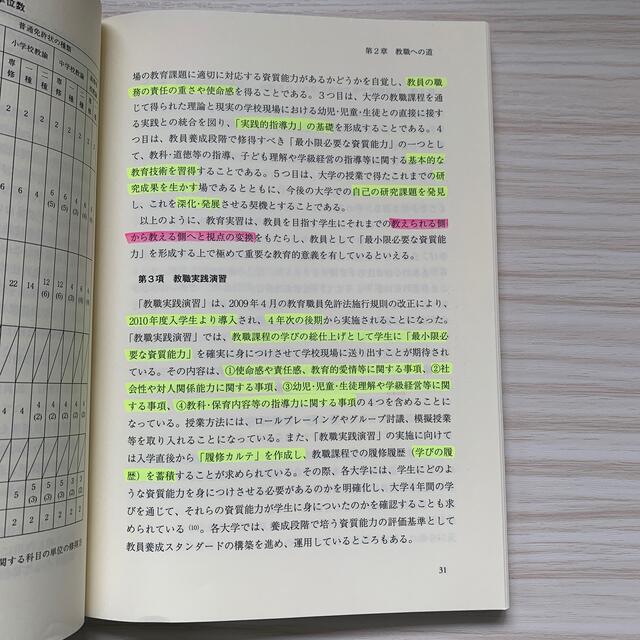 位数
普通免許状の種類
小学校教諭
中学校教諭
専修
一種
二種
専修
一種
二種
第2章　教職への道
場の教育課題に適切に対応する資質能力があるかどうかを自覚し、教員の職
務の責任の重さや使命感を得ることである。3つ目は、大学の教職課程を通
じて得られた理論と現実の学校現場における幼児・児童・生徒との直接に接す
る実践との統合を図り、「実践的指導力」の基礎を形成することである。4
つ目は、教員養成段階で修得すべき「最小限必要な資質能力」の一つとし
て、教科・道徳等の指導、子ども理解や学級経営の指導等に関する基本的な
教育技術を習得することである。5つ目は、大学の授業で得たこれまでの研
究成果を生かす場であるとともに、今後の大学での自己の研究課題を発見
し、これを深化・発展させる契機とすることである。
以上のように、教育実習は、教員を目指す学生にそれまでの教えられる側
から教える側へと視点の変換をもたらし、教員として「最小限必要な資質能
力」を形成する上で極めて重要な教育的意義を有しているといえる。
第3項　教職実践演習
「教職実践演習」は、2009年4月の教育職員免許法施行規則の改正により、
2010年度入学生より導入され、4年次の後期から実施されることになった。
「教職実践演習」では、教職課程の学びの総仕上げとして学生に「最小限必
要な資質能力」を確実に身につけさせて学校現場に送り出すことが期待され
ている。その内容は、①使命感や責任感、教育的愛情等に関する事項、②社
会性や対人関係能力に関する事項、③幼児・児童・生徒理解や学級経営等に関
する事項、④教科・保育内容等の指導力に関する事項の4つを含めることに
なっている。授業方法には、ロールプレーイングやグループ討議、模擬授業
等を取り入れることになっている。また、「教職実践演習」の実施に向けて
は入学直後から「履修カルテ」を作成し、教職課程での履修履歴（学びの履
歴）を蓄積することが求められている。その際、各大学には、学生にどのよ
うな資質能力を身につけさせる必要があるのかを明確化し、大学4年間の学
びを通じて、それらの資質能力が学生に身についたのかを確認することも求
められている(10)。各大学では、養成段階で培う資質能力の評価基準として
教員養成スタンダードの構築を進め、運用しているところもある。
31
関する科目の単位の修得方